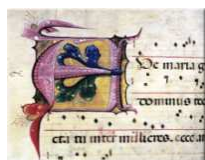 De maria g
dominus tec
cta tu inter mulieres. ecce an